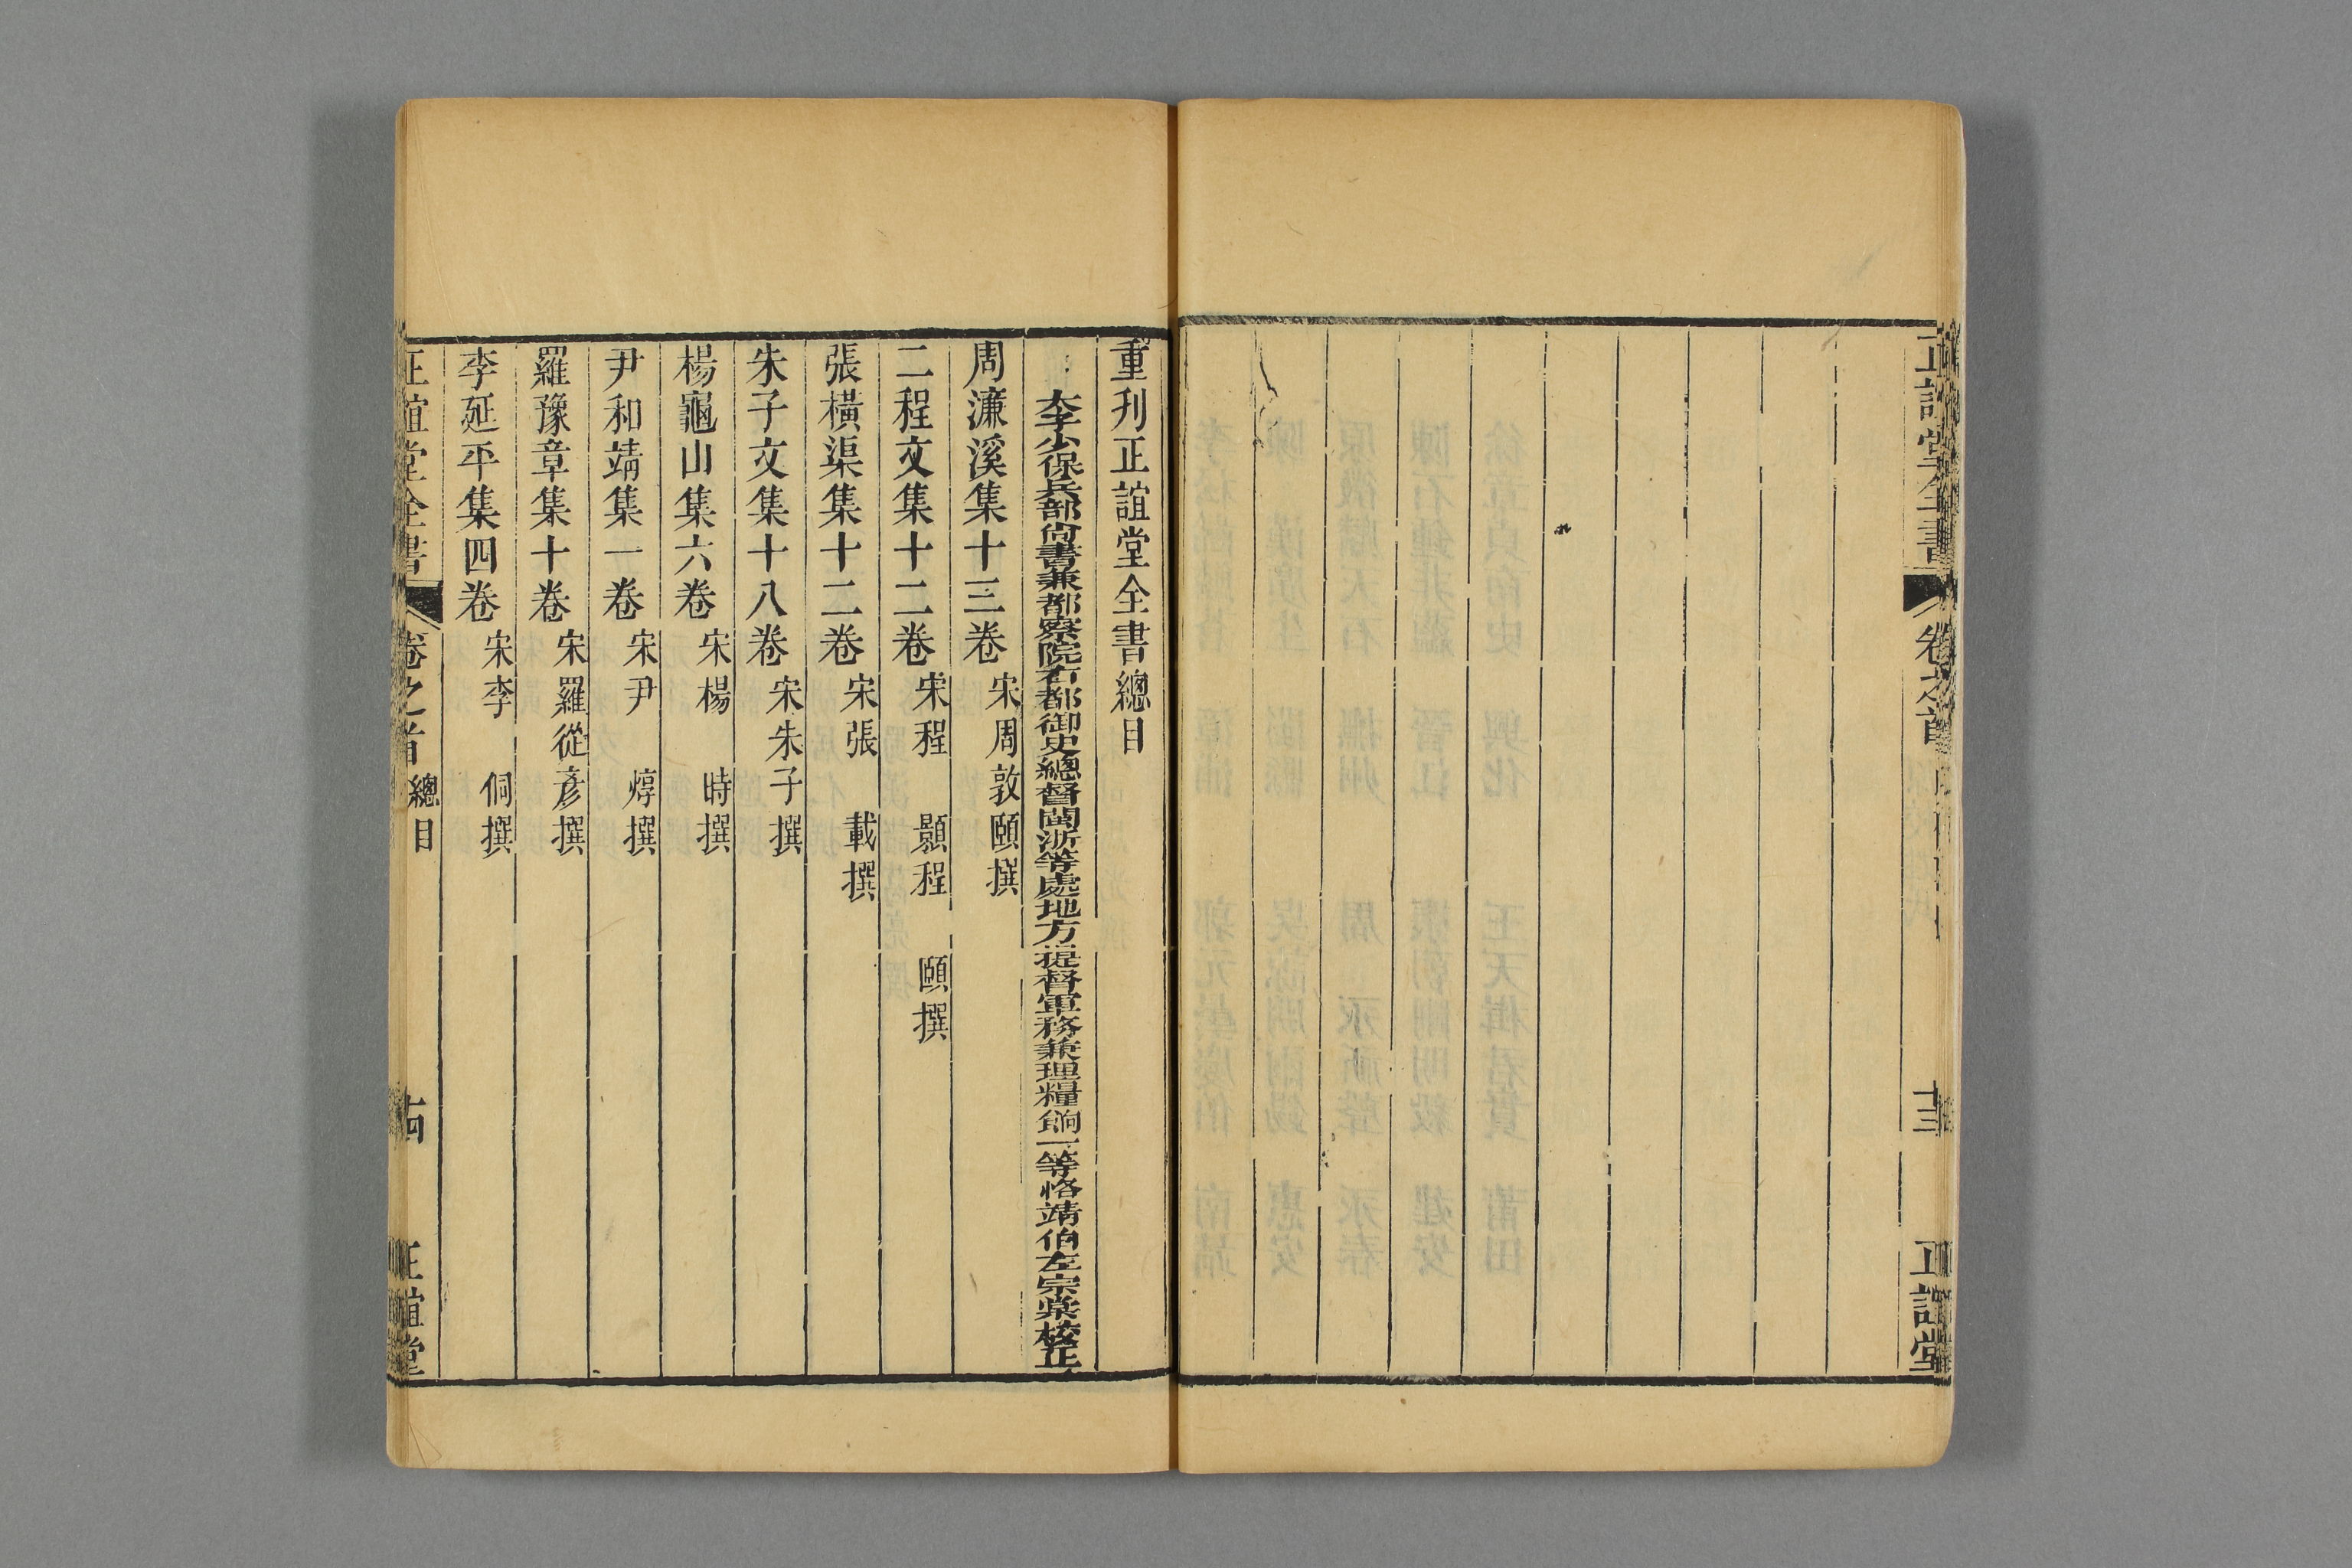 正誼堂全書
卷之首
十三
正誼堂
重刊正誼堂全書總目
太子少保兵部尚書兼都察院右都御史總督閩浙等處地方提督軍務兼理糧餉一等恪靖伯左宗棠校正
周濂溪集十三卷 宋周敦頤撰
二程文集十二卷 宋程 顥程 頤撰
張橫渠集十二卷 宋張 載撰
朱子文集十八卷 宋朱子撰
楊龜山集六卷 宋楊 時撰
尹和靖集一卷 宋尹 焞撰
羅豫章集十卷 宋羅從彥撰
李延平集四卷 宋李 侗撰
正誼堂全書
卷之首 總目
正誼堂